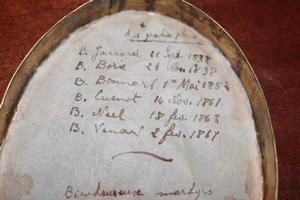 B. Jaccard 21 Sept. 1838
B. Borie 24 Nov. 1838
B. Bonnard 1er Mai 1852
B. Cuenot 14 Nov. 1861
B. Néel 18 fév. 1862
B. Venard 2 fév. 1861
Bienheureux martyrs